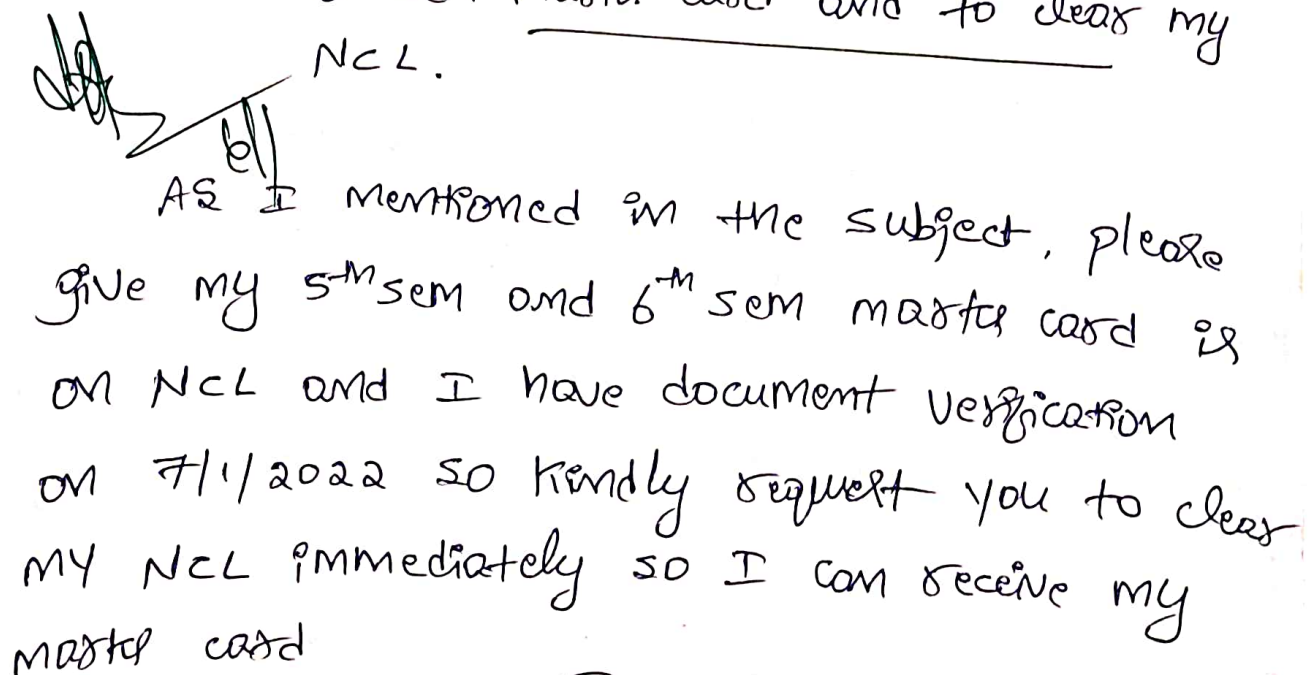 and to clear my
NCL.
AS I mentioned in the subject, please
give my 5th sem and 6th sem marks card is
on NCL and I have document verfication
on 7/1/2022 so kindly request you to clear
MY NCL immediately so I can receive my
marks card